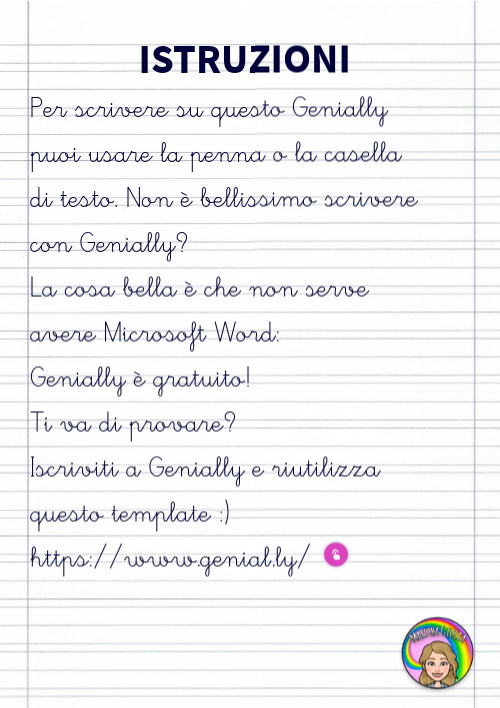 ISTRUZIONI
Per scrivere su questo Genially
puoi usare la penna o la casella
di testo. Non è bellissimo scrivere
con Genially?
La cosa bella è che non serve
avere Microsoft Word:
Genially è gratuito!
Ti va di provare?
Iscriviti a Genially e riutilizza
questo template :)
https://www.genial.ly/